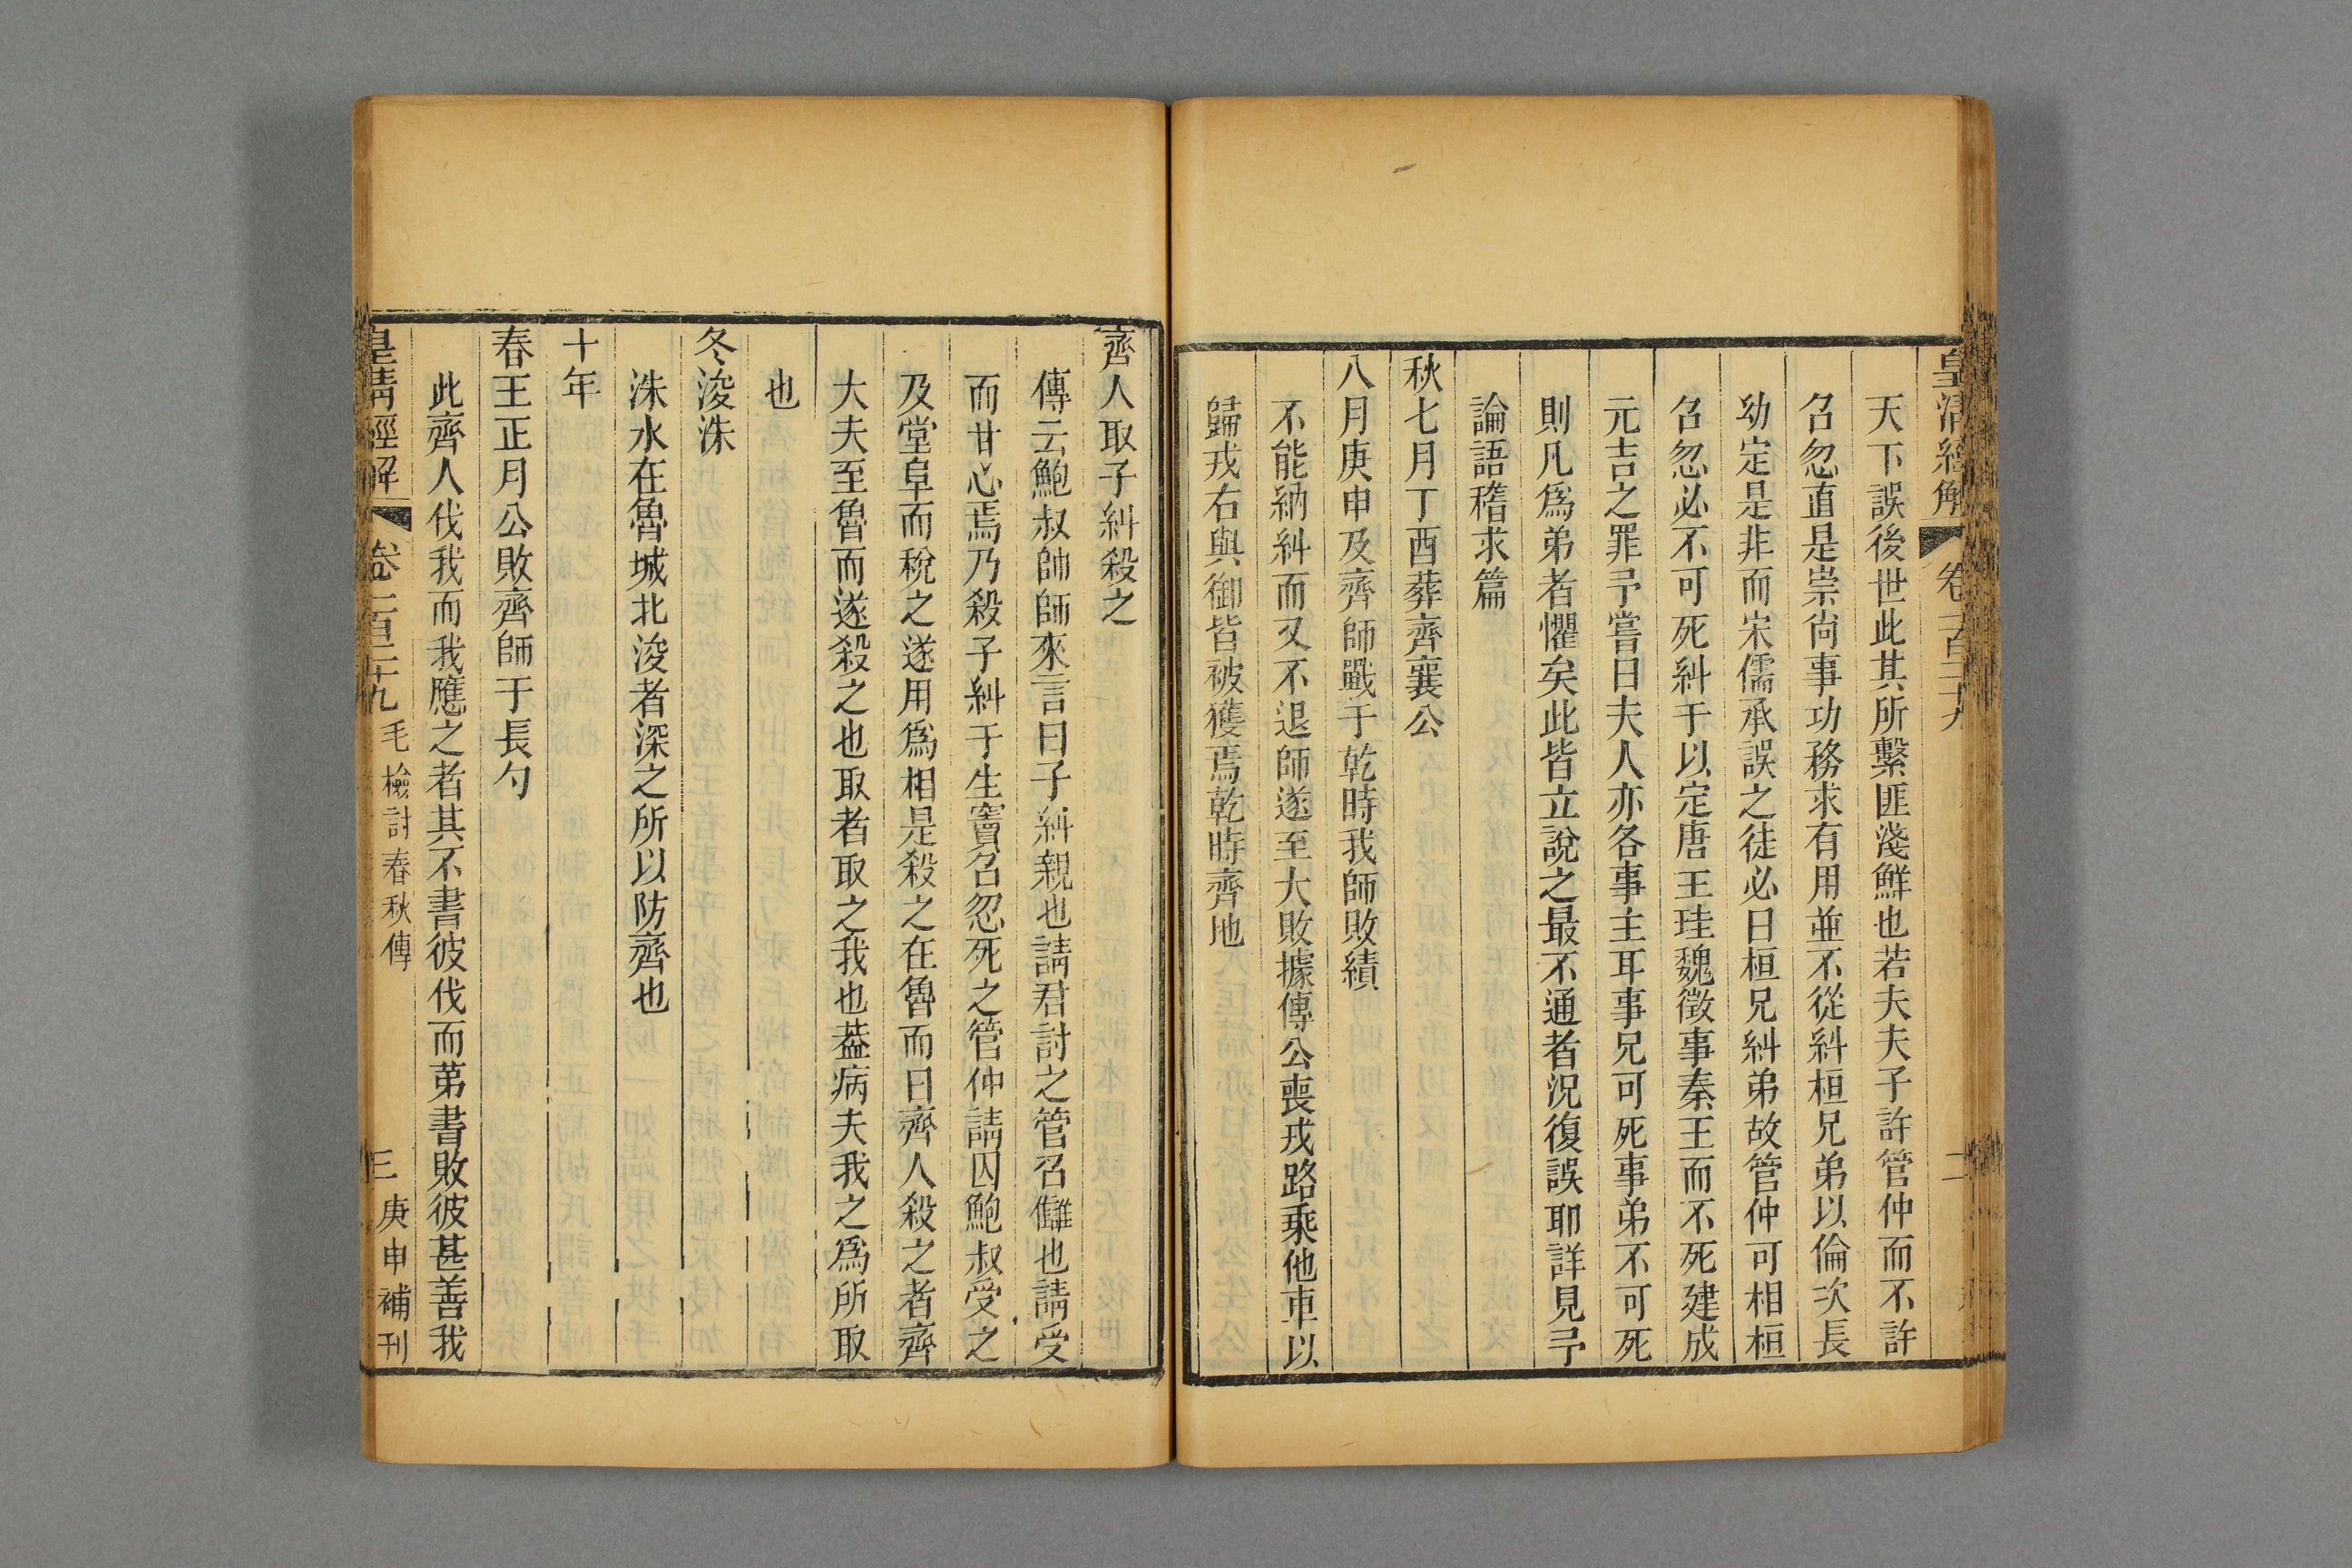 皇清經解 卷一百二十九 二
天下誤後世此其所繫匪淺鮮也若夫夫子許管仲而不許
召忽直是崇尚事功務求有用並不從糾桓兄弟以倫次長
幼定是非而宋儒承誤之徒必曰桓兄糾弟故管仲可相桓
召忽必不可死糾于以定唐王珪魏徵事秦王而不死建成
元吉之罪予嘗曰夫人亦各事主耳事兄可死事弟不可死
則凡爲弟者懼矣此皆立說之最不通者況復誤耶詳見予
論語稽求篇
秋七月丁酉葬齊襄公
八月庚申及齊師戰于乾時我師敗績
不能納糾而又不退師遂至大敗據傳公喪戎路乘他車以
歸戎右與御皆被獲焉乾時齊地
齊人取子糾殺之
傳云鮑叔帥師來言曰子糾親也請君討之管召讎也請受
而甘心焉乃殺子糾于生竇召忽死之管仲請囚鮑叔受之
及堂阜而稅之遂用爲相是殺之在魯而曰齊人殺之者齊
大夫至魯而遂殺之也取者取之我也葢病夫我之爲所取
也
冬浚洙
洙水在魯城北浚者深之所以防齊也
十年
春王正月公敗齊師于長勺
此齊人伐我而我應之者其不書彼伐而苐書敗彼甚善我
皇清經解 卷一百二十九 毛檢討春秋傳 三 庚申補刊